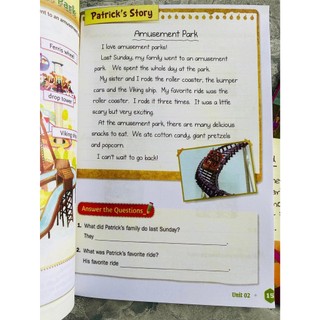 Ferris wheel
drop tower
Viking
Patrick's Story
Amusement Park
I love amusement parks!
Last Sunday, my family went to an amusement
park. We spent the whole day at the park.
My sister and I rode the roller coaster, the bumper
cars and the Viking ship. My favorite ride was the
roller coaster. I rode it three times. It was a little
scary but very exciting.
At the amusement park, there are many delicious
snacks to eat. We ate cotton candy, giant pretzels
and popcorn.
I can't wait to go back!
Answer the Questions
1. What did Patrick's family do last Sunday?
They
2. What was Patrick's favorite ride?
His favorite ride
Unit 02
15